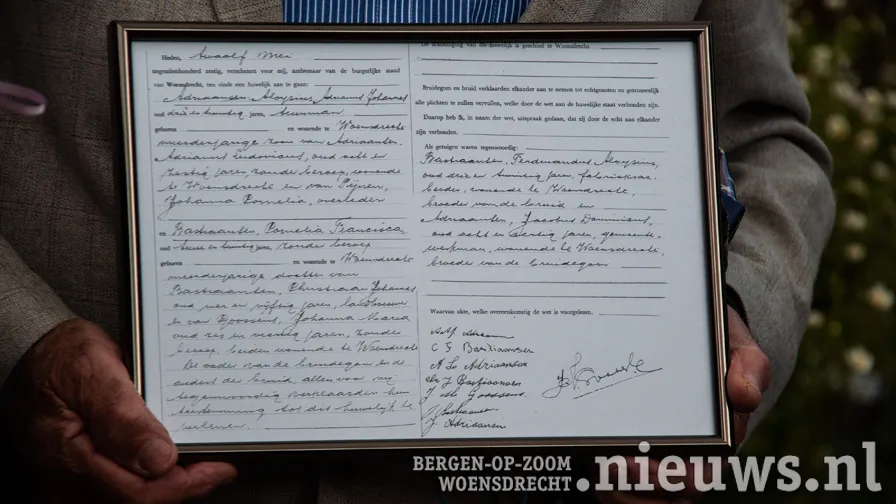 Heden, twaalf Mei
negentienhonderd zestig, verschenen voor mij, ambtenaar van de burgerlijke stand
van Woensdrecht, ten einde een huwelijk aan te gaan:
Adriaansen, Aloysius Adrianus Johannes
oud drie en twintig jaren, stuurman
geboren en wonende te Woensdrecht
meerderjarige zoon van Adriaansen,
Adrianus Ludovicus, oud acht en
zestig jaren, zonder beroep, wonende
te Woensdrecht en van Pijnen,
Johanna Cornelia, overleden
en Bastiaansen, Cornelia Francisca,
oud twintig jaren, zonder beroep
geboren en wonende te Woensdrecht
meerderjarige dochter van
Bastiaansen, Christiaan Johannes
oud vier en vijftig jaren, landbouwer
en van Goossens, Johanna Maria
oud zes en veertig jaren, zonder
beroep, beiden wonende te Woensdrecht
De vader van de bruidegom en de
ouders der bruid, allen voor mij
tegenwoordig verklaarden hun
toestemming tot dit huwelijk te
verlenen.
De afkondiging van dit huwelijk is geschied te Woensdrecht
Bruidegom en bruid verklaarden elkander aan te nemen tot echtgenoten en getrouwelijk
alle plichten te zullen vervullen, welke door de wet aan de huwelijke staat verbonden zijn.
Daarop heb ik, in naam der wet, uitspraak gedaan, dat zij door de echt aan elkander
zijn verbonden.
Als getuigen waren tegenwoordig:
Bastiaansen, Ferdinandus Aloysius,
oud drie en twintig jaren, fabrieksar-
beider, wonende te Woensdrecht,
broeder van de bruid en
Adriaansen, Jacobus Dominicus,
oud acht en dertig jaren, gemeente-
werkman, wonende te Woensdrecht,
broeder van de bruidegom
Waarvan akte, welke overeenkomstig de wet is voorgelezen.
C F Bastiaansen
A L Adriaansen
Chr J Bastiaansen
J M Goossens
J Adriaansen
BERGEN-OP-ZOOM
WOENSDRECHT
.nieuws.nl